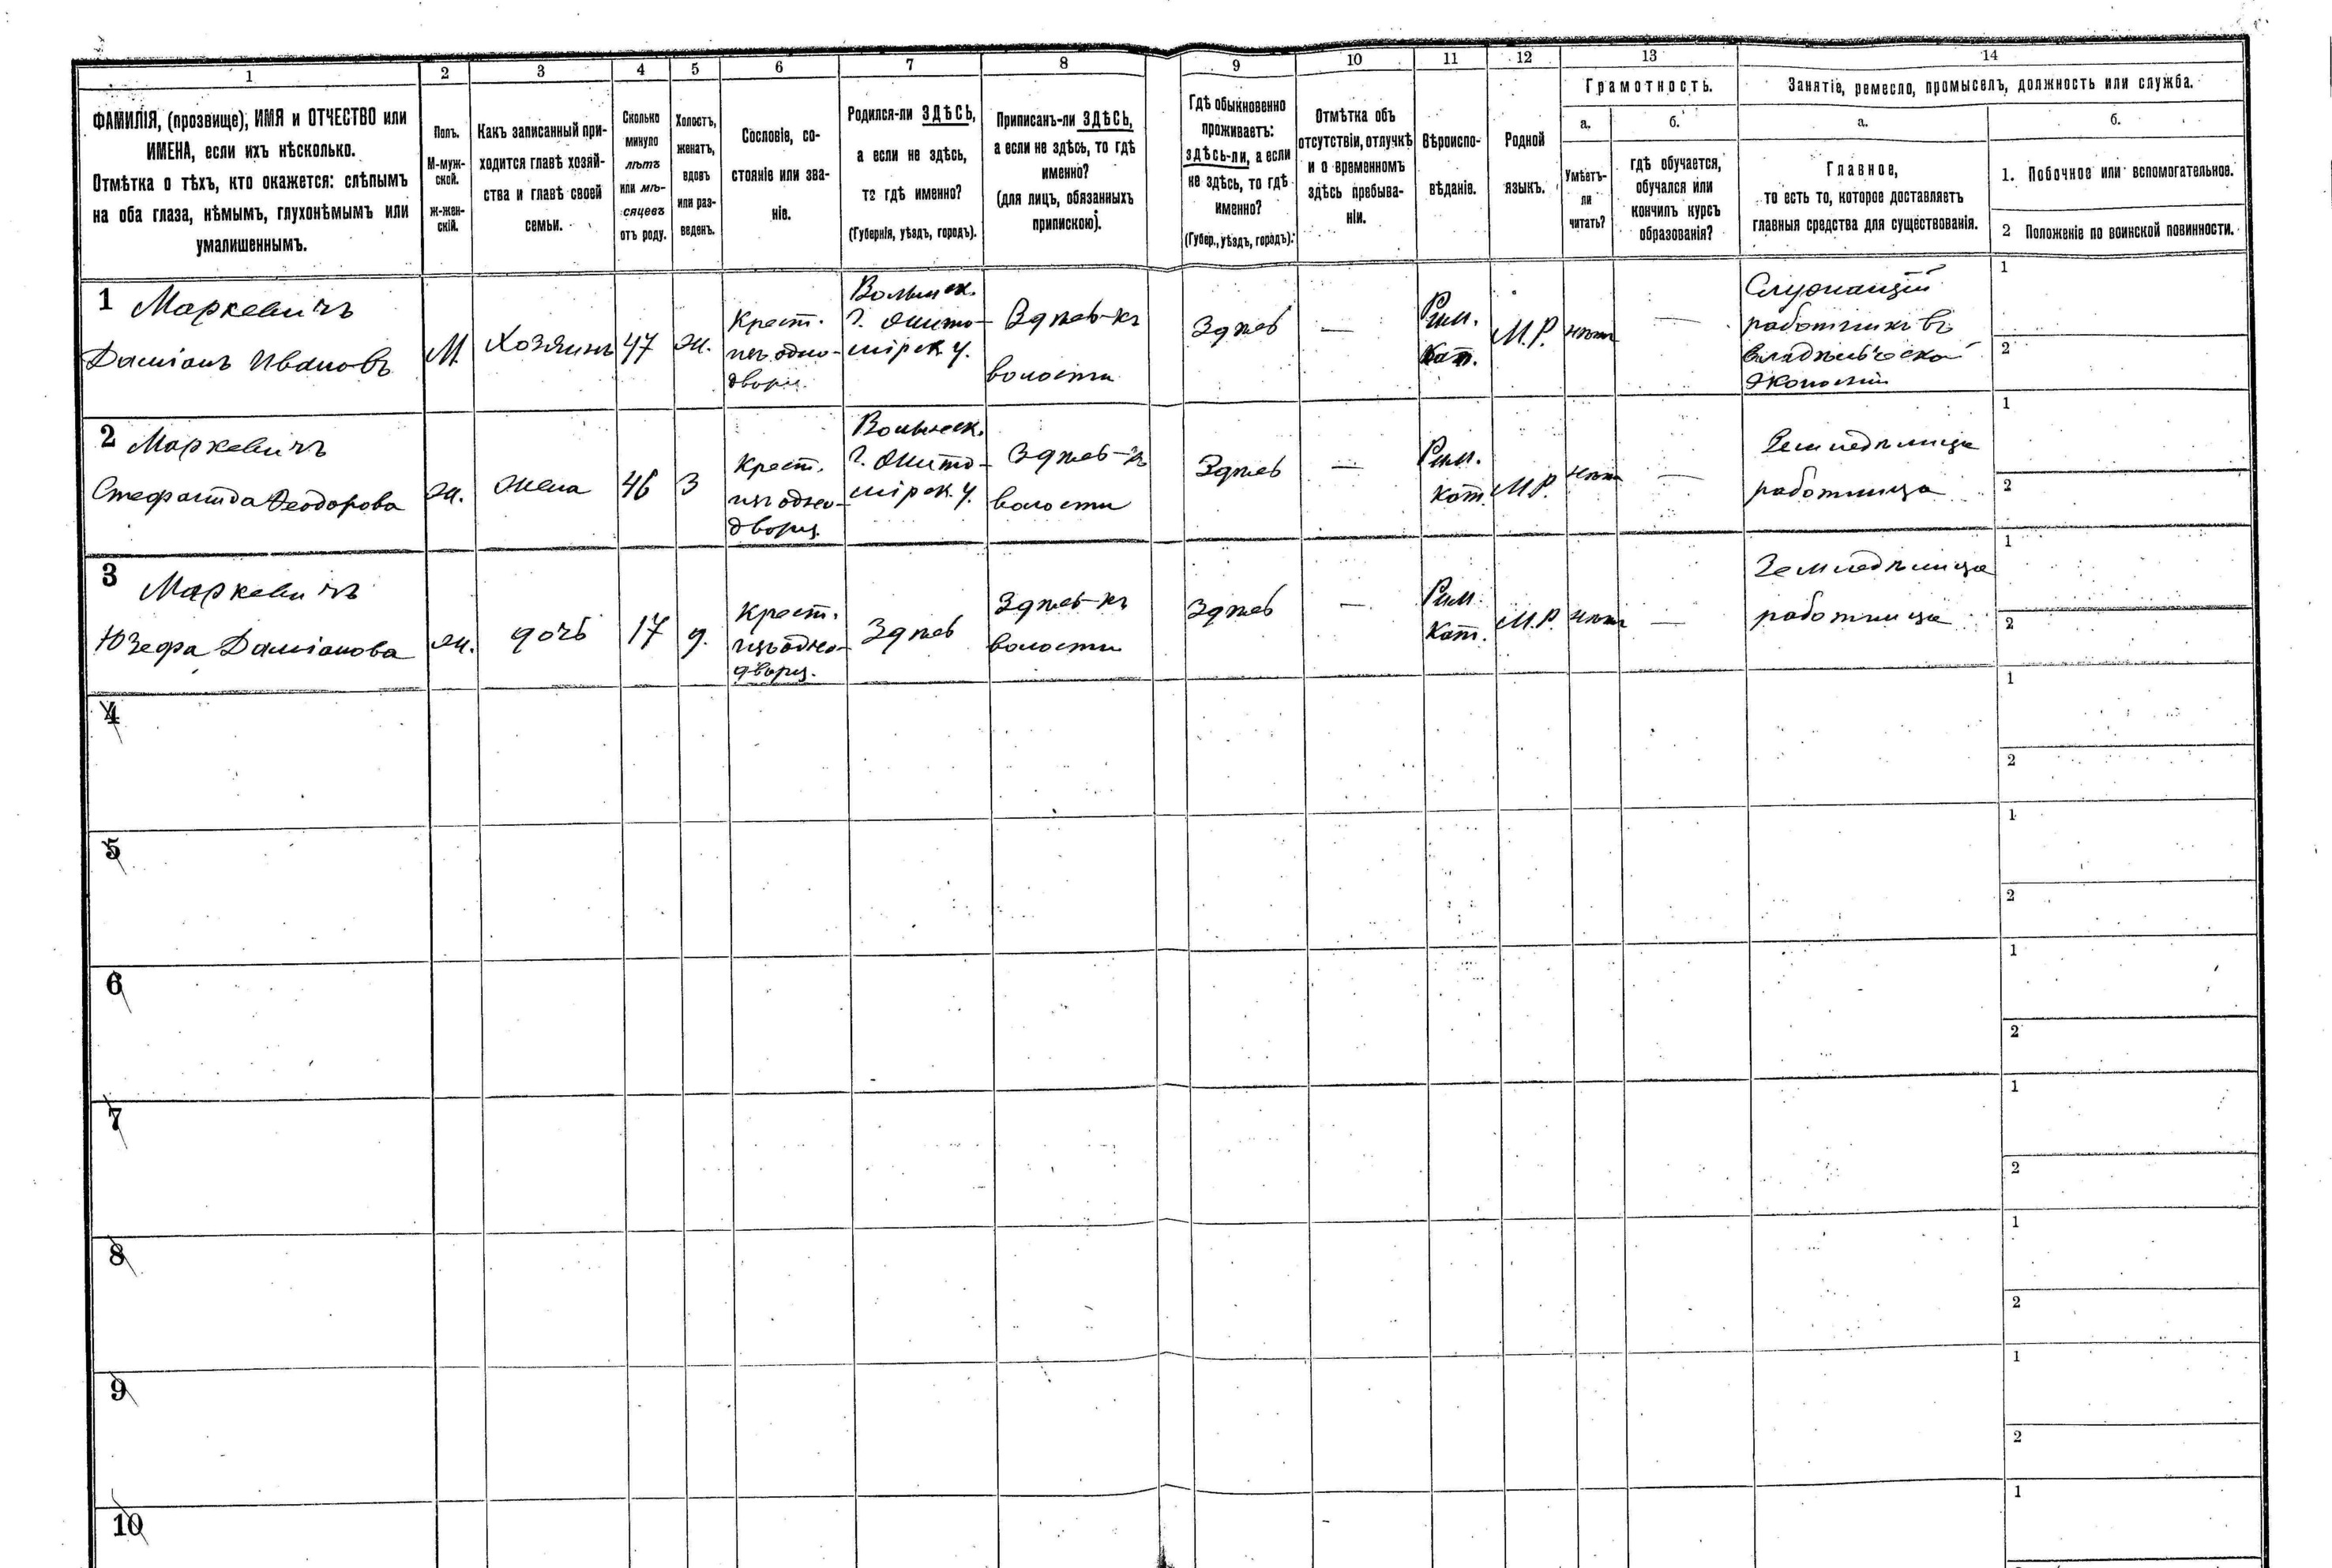 1 2 3 4 5 6 7 8 9 10 11 12 13 14
ФАМИЛІЯ, (прозвище), ИМЯ и ОТЧЕСТВО или
ИМЕНА, если ихъ нѣсколько.
Отмѣтка о тѣхъ, кто окажется: слѣпымъ
на оба глаза, нѣмымъ, глухонѣмымъ или
умалишеннымъ.
Полъ.
М-муж-
ской.
ж-жен-
скій.
Какъ записанный при-
ходится главѣ хозяй-
ства и главѣ своей
семьи.
Сколько
минуло
лѣтъ
или мѣ-
сяцевъ
отъ роду.
Холостъ,
женатъ,
вдовъ
или раз-
веденъ.
Сословіе, со-
стояніе или зва-
ніе.
Родился-ли ЗДѢСЬ,
а если не здѣсь,
то гдѣ именно?
(Губернія, уѣздъ, городъ).
Приписанъ-ли ЗДѢСЬ,
а если не здѣсь, то гдѣ
именно?
(для лицъ, обязанныхъ
припискою).
Гдѣ обыкновенно
проживаетъ:
здѣсь-ли, а если
не здѣсь, то гдѣ
именно?
(Губер., уѣздъ, городъ).
Отмѣтка объ
отсутствіи, отлучкѣ
и о временномъ
здѣсь пребыва-
ніи.
Вѣроиспо-
вѣданіе.
Родной
языкъ.
Грамотность.
а.
Умѣетъ-
ли
читать?
б.
гдѣ обучается,
обучался или
кончилъ курсъ
образованія?
Занятіе, ремесло, промыселъ, должность или служба.
а.
Главное,
то есть то, которое доставляетъ
главныя средства для существованія.
б.
1. Побочное или вспомогательное.
2 Положеніе по воинской повинности.
1 Маркевичъ
Даміанъ Ивановъ
М.
Хозяинъ
47
ж.
Крест.
изъ одно-
дворц.
Волынск.
г. Жито-
мірск. у.
Здѣсь-къ
волости
Здѣсь
—
Рим.
Кат.
М.Р.
нѣтъ
—
Служащій
работникъ въ
владѣльческой
экономіи
1
2
2 Маркевичъ
Стефанида Ѳеодорова
ж.
жена
46
З
Крест.
изъ одно-
дворц.
Волынск.
г. Жито-
мірск. у.
Здѣсь-къ
волости
Здѣсь
—
Рим.
Кат.
М.Р.
нѣтъ
—
Земледѣлица
работница
1
2
3 Маркевичъ
Юзефа Даміанова
ж.
дочь
17
д.
Крест.
изъ одно-
дворц.
Здѣсь
Здѣсь-къ
волости
Здѣсь
—
Рим.
Кат.
М.Р.
нѣтъ
—
Земледѣлица
работница
1
2
4
1
2
5
1
2
6
1
2
7
1
2
8
1
2
9
1
2
10
1